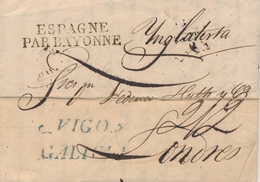 ESPAGNE
PAR BAYONNE
Ynglaterra
Federico Huth y Cª
VIGO
GALICIA
Londres